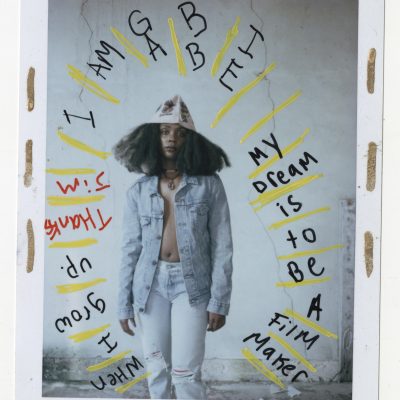 I
AM
GA
BB
IE
MY
DREAM
is
to
BE
A
FilM
MAKER
WHEN
I
grow
up.
THANKS
JiM